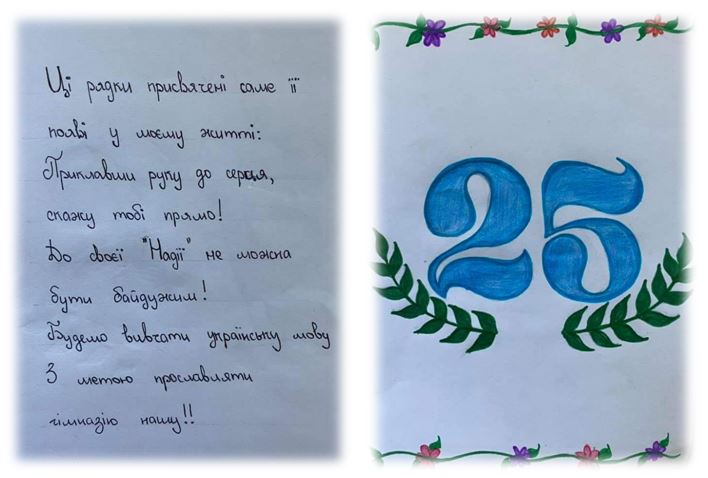 Ці рядки присвячені саме її
появі у моєму житті:
Приклавши руку до серця,
скажу тобі прямо!
До своєї "Надії" не можна
бути байдужим!
Будемо вивчати українську мову
З метою прославляти
гімназію нашу!!
25